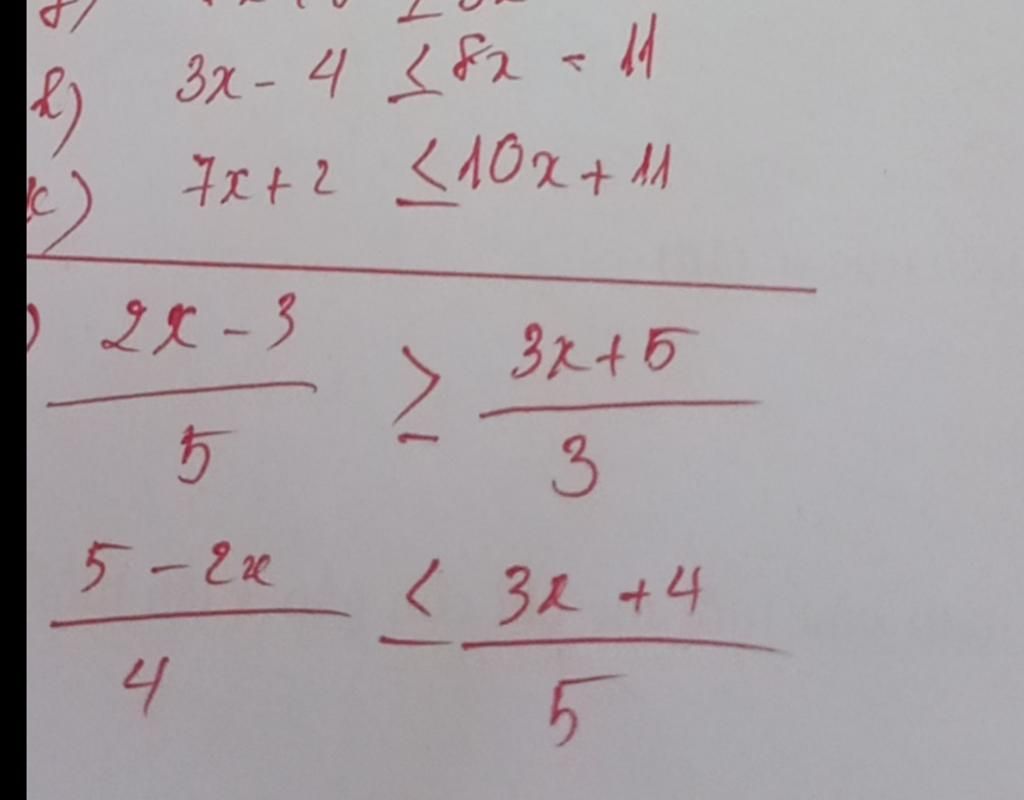 h) 3x - 4 ≤ 8x - 11
k) 7x + 2 ≤ 10x + 11
) (2x - 3)/5 ≥ (3x + 5)/3
(5 - 2x)/4 ≤ (3x + 4)/5